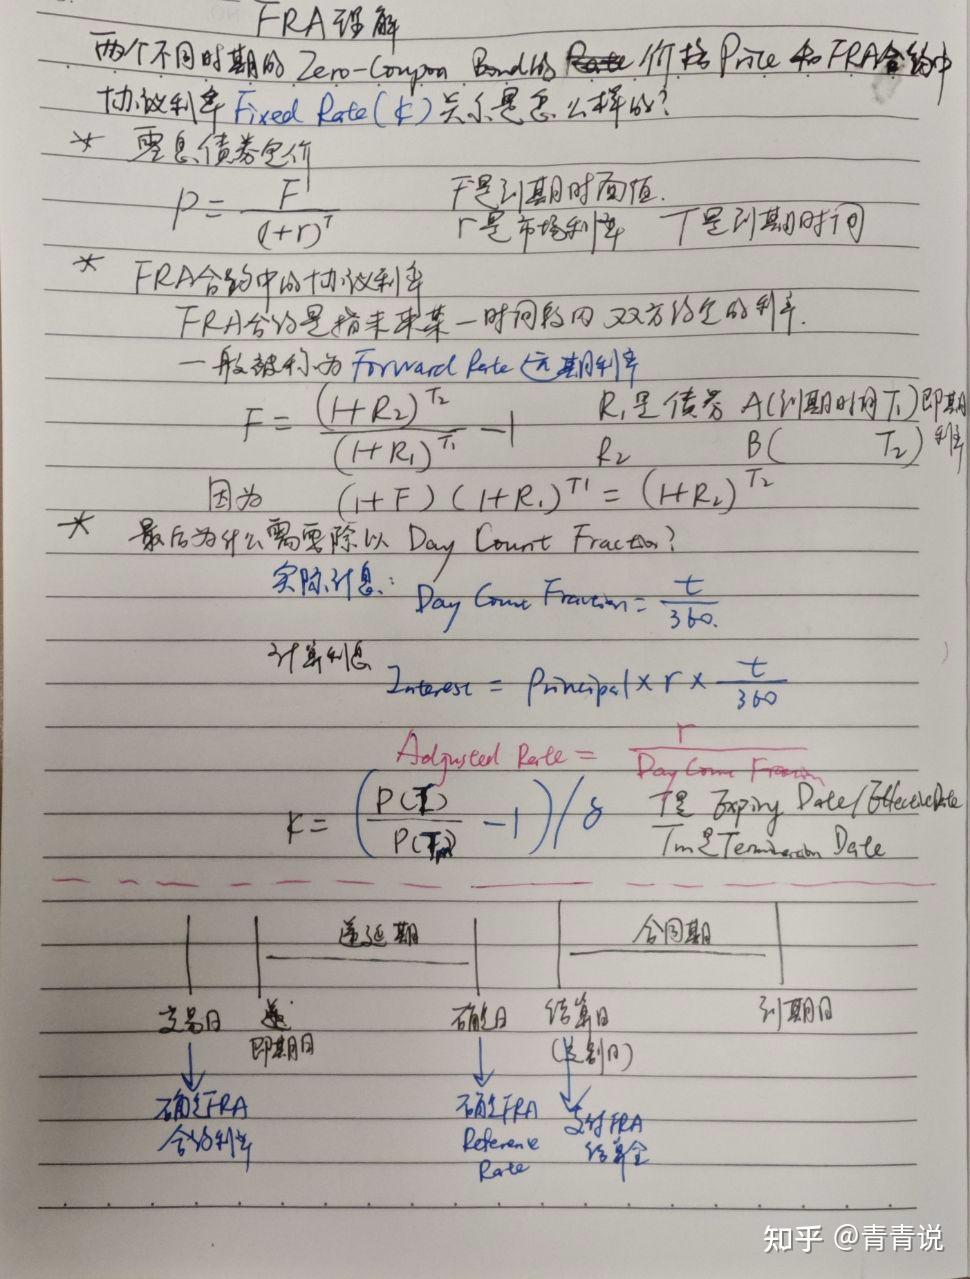 FRA理解
两个不同时期的 Zero-Coupon Bond的 Rate 价格 Price 和 FRA合约中
协议利率 Fixed Rate(K) 关系是怎么样的?
* 零息债券定价
P = F / (1+r)^T F是到期时面值.
r是市场利率 T是到期时间
* FRA合约中的协议利率
FRA合约是指未来某一时间段内 双方约定的利率.
一般被称为 Forward Rate 远期利率
F = (1+R₂)^T₂ / (1+R₁)^T₁ - 1 R₁是债券 A(到期时间T₁)即期利率
R₂ B( T₂)
因为 (1+F)(1+R₁)^T1 = (1+R₂)^T₂
* 最后为什么需要除以 Day Count Fraction?
实际计息: Day Count Fraction = t / 360.
计算利息 Interest = Principal × r × t / 360
Adjusted Rate = r / Day Count Fraction
K = (P(T) / P(Tm) - 1) / δ T是 Expiry Date/Effective Date
Tm是Termination Date
递延期 合同期
交易日 即期日 确定日 结算日 到期日
(交割日)
确定FRA 确定FRA 支付FRA
合约利率 Reference 结算金
Rate
知乎 @青青说